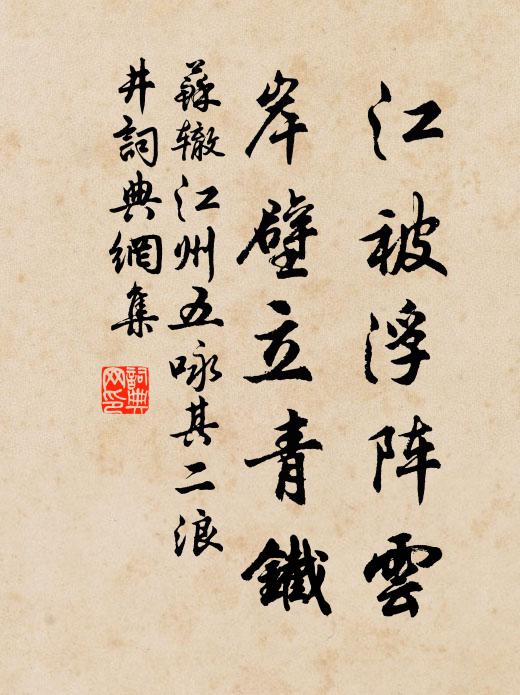 江被浮阵雲
岸壁立青鐵
蘇辙江州五咏其二浪
井詞典網集
詞典
网印